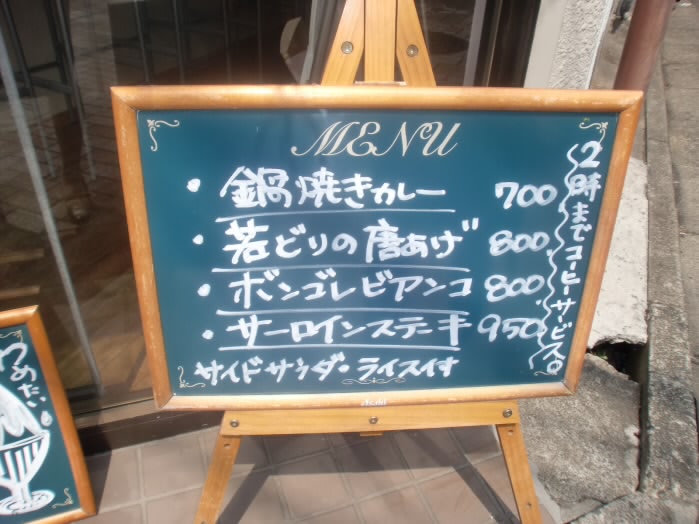 MENU
・鍋焼きカレー 700
・若どりの唐あげ 800
・ボンゴレビアンコ 800
・サーロインステーキ 950
サイドサラダ・ライスイす
2時までコーヒーサービス。
つめたい